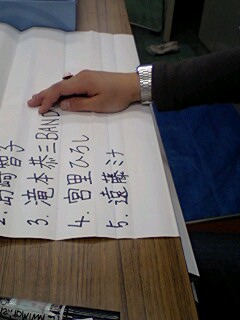 2. 島崎智子
3. 滝本恭三BAND
4. 宮里ひろし
5. 遠藤ミチ